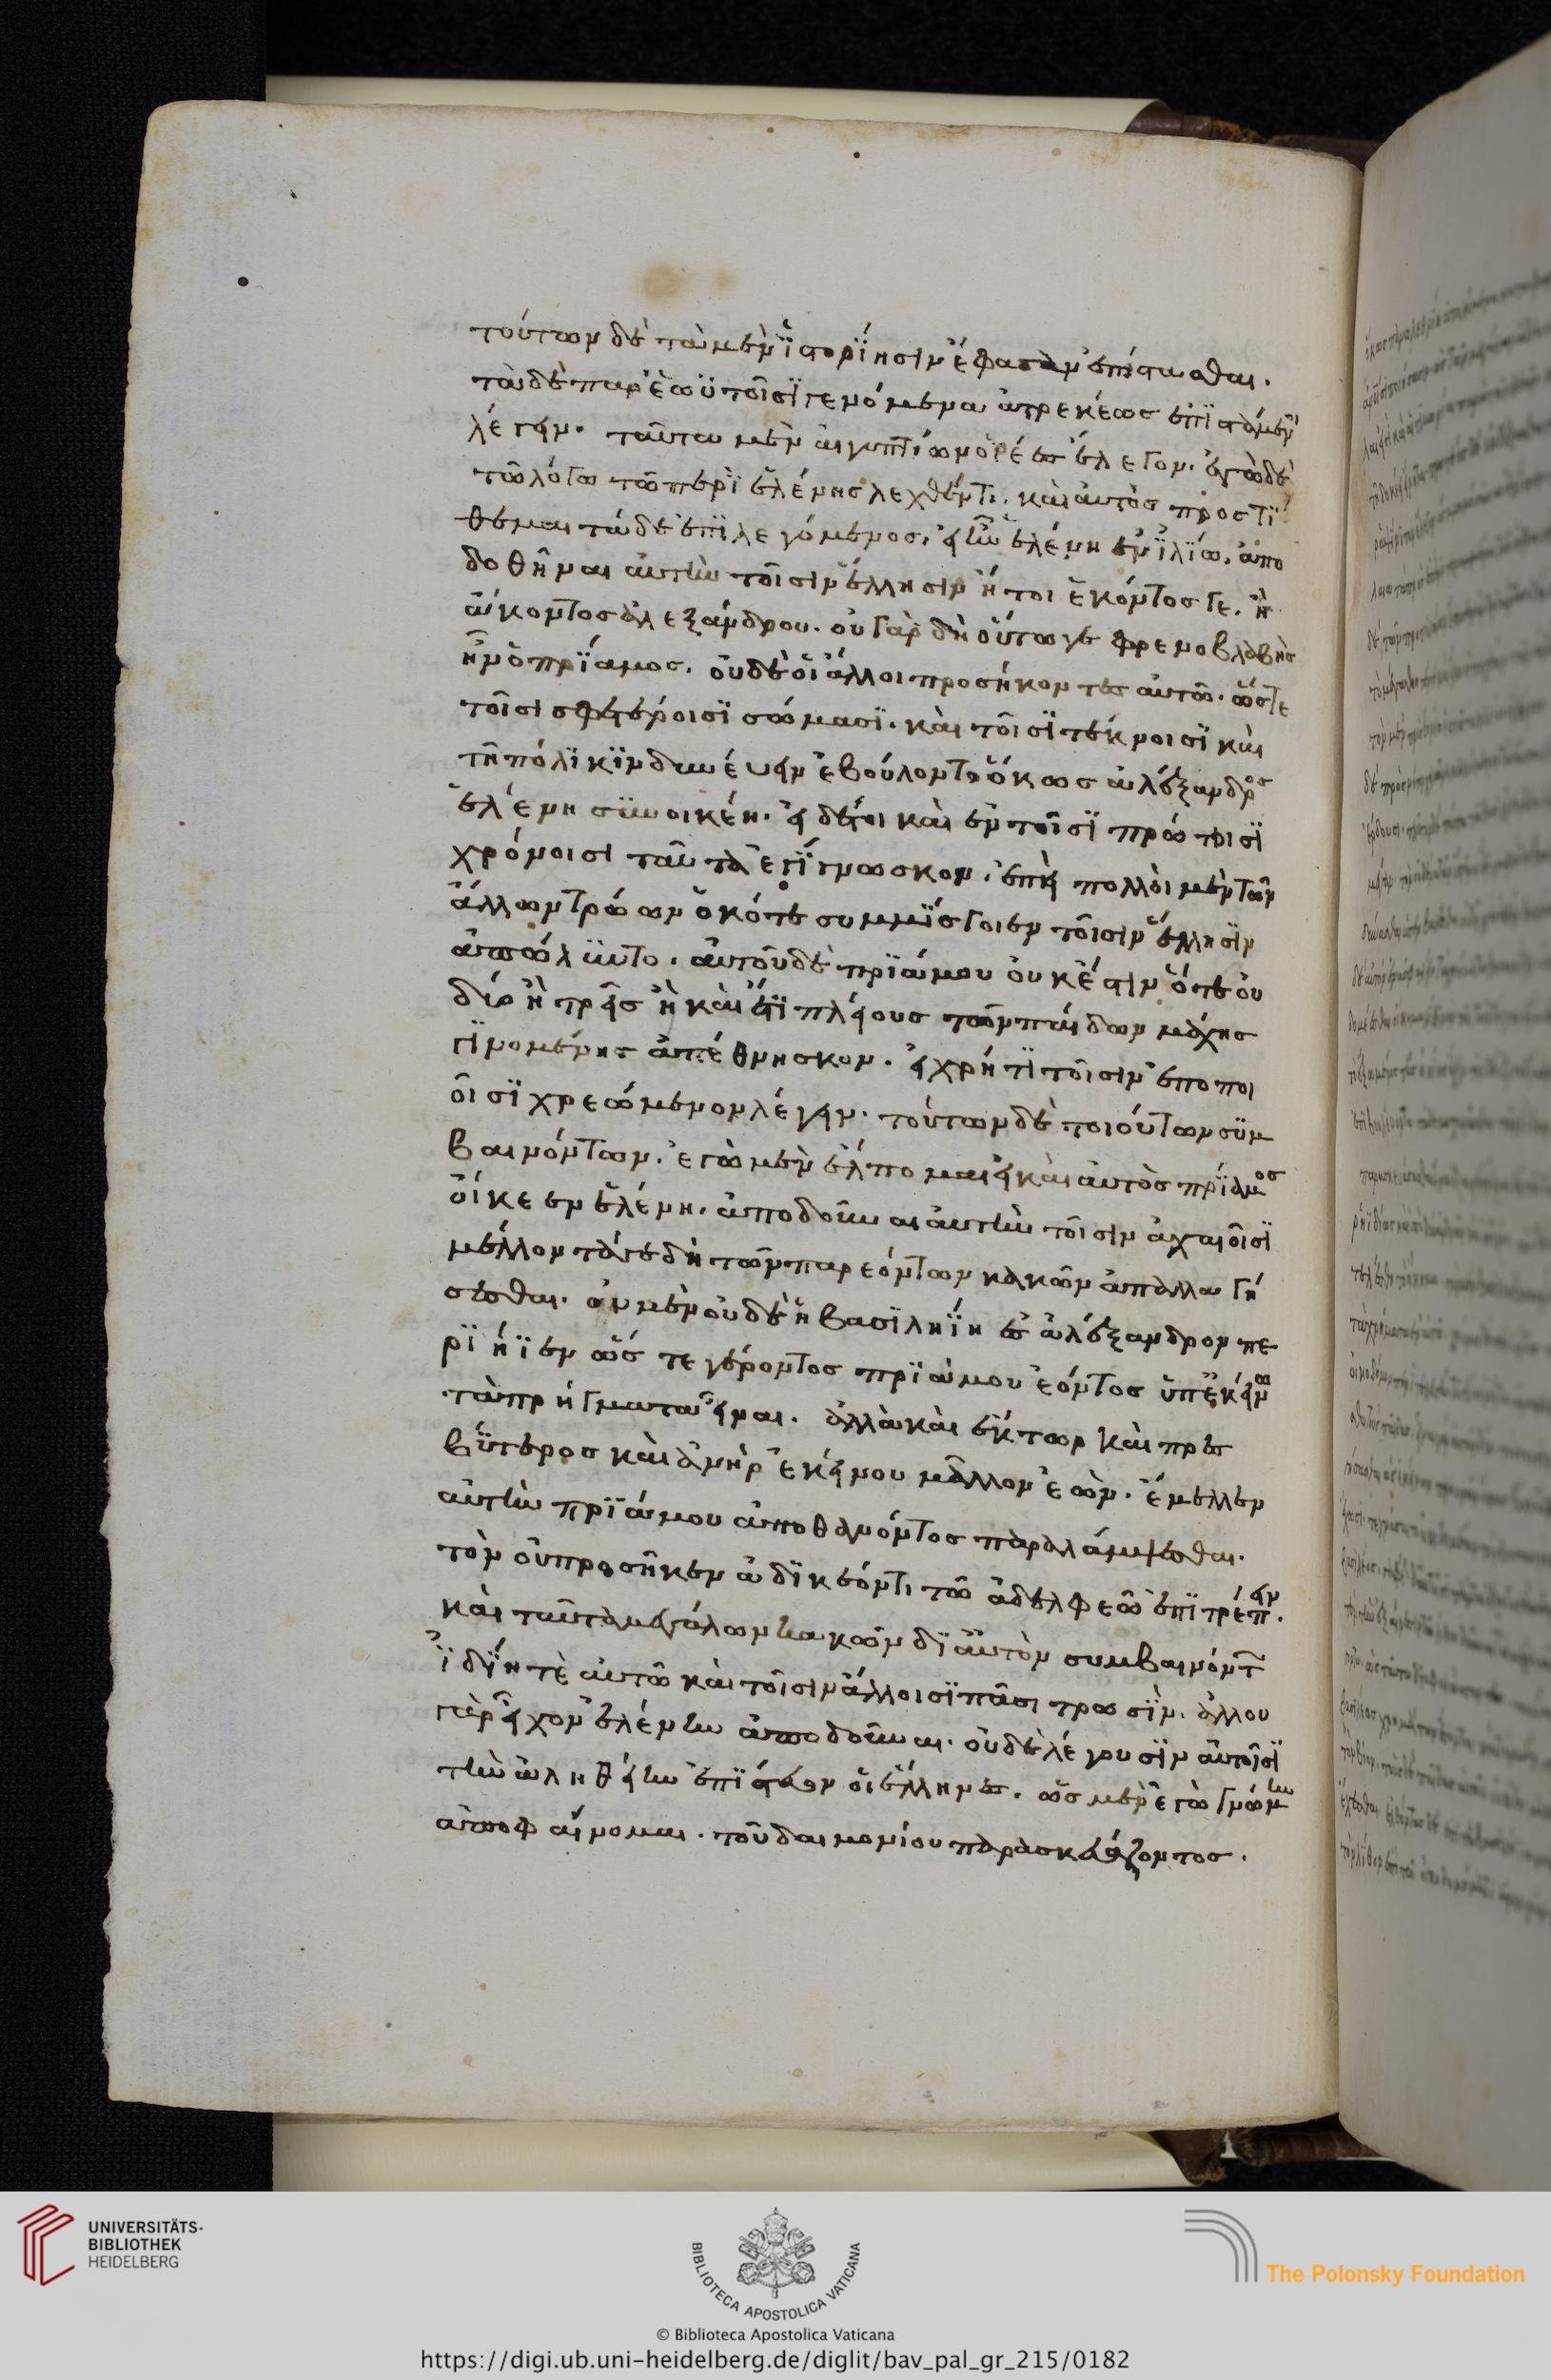 τούτων δὲ τὰ μὲν ἱστορίησιν ἔφασαν ἐπίστασθαι.
τὰ δὲ παρ' ἑωϋτοῖσι γενόμενα ἀτρεκέως ἐπιστάμεν
λέγειν. ταῦτα μὲν αἰγυπτίων ὁρέες ἔλεγον. ἐγὼ δὲ
τῶ λόγω τῶ περὶ ἑλένης λεχθέντι. καὶ αὐτὸς προστί
θεμαι τάδε ἐπιλεγόμενος. εἰ ἦν ἑλένη ἐν ἰλίω. ἀπο
δοθῆναι αὐτὴν τοῖσιν ἕλλησιν ἤτοι ἑκόντος γε. ἢ
ἄκοντος ἀλεξάνδρου. οὐ γὰρ δὴ οὕτω γε φρενοβλαβὴς
ἦν ὁ πρίαμος. οὐδὲ οἱ ἄλλοι προσήκοντες αὐτῶ. ὥστε
τοῖσι σφετέροισι σώμασι. καὶ τοῖσι τέκνοισι καὶ
τῆ πόλι κινδυνεύειν ἐβούλοντο ὅκως ἀλέξανδρος
ἑλένη συνοικέη. εἰ δέ τοι καὶ ἐν τοῖσι πρώτοισι
χρόνοισι ταῦτα ἐγίγνωσκον. ἐπεὶ πολλοὶ μὲν τῶν
ἄλλων τρώων ὁκότε συμμίσγοιεν τοῖσιν ἕλλησιν
ἀπώλυντο. αὐτοῦ δὲ πριάμου οὐκ ἔστιν ὅτε οὐ
δύο ἢ τρεῖς ἢ καὶ ἔτι πλείους τῶν παίδων μάχης
γινομένης ἀπέθνησκον. εἰ χρή τι τοῖσιν ἐποποι
οῖσι χρεώμενον λέγειν. τούτων δὲ τοιούτων συμ
βαινόντων. ἐγὼ μὲν ἔλπομαι εἰ καὶ αὐτὸς πρίαμος
οἴκεεν ἑλένη. ἀποδοῦναι αὐτὴν τοῖσιν ἀχαιοῖσι
μέλλοντά γε δὴ τῶν παρεόντων κακῶν ἀπαλλαγή
σεσθαι. οὐ μὲν οὐδὲ ἡ βασιληίη ἐς ἀλέξανδρον πε
ριήιεν ὥς τε γέροντος πριάμου ἐόντος ὑπ' ἐκείνω
τὰ πρήγματα εἶναι. ἀλλὰ καὶ ἕκτωρ καὶ πρεσ
βύτερος καὶ ἀνὴρ ἐκείνου μᾶλλον ἐὼν. ἔμελλεν
αὐτὴν πριάμου ἀποθανόντος παραλάμψεσθαι.
τὸν οὐ προσῆκεν ἀδικέοντι τῶ ἀδελφεῶ ἐπιτρέπειν.
καὶ ταῦτα μεγάλων κακῶν δι' αὐτὸν συμβαινόντ
ἰδίη τὲ αὐτῶ καὶ τοῖσιν ἄλλοισι πᾶσι τρωσίν. ἀλλ' οὐ
γὰρ εἶχον ἑλένην ἀποδοῦναι. οὐδὲ λέγουσιν αὐτοῖσι
τὴν ἀληθείην ἐπίστευον οἱ ἕλληνες. ὡς μὲν ἐγὼ γνώμην
ἀποφαίνομαι. τοῦ δαιμονίου παρασκευάζοντος.
UNIVERSITÄTS-
BIBLIOTHEK
HEIDELBERG
BIBLIOTECA APOSTOLICA VATICANA
The Polonsky Foundation
© Biblioteca Apostolica Vaticana
https://digi.ub.uni-heidelberg.de/diglit/bav_pal_gr_215/0182